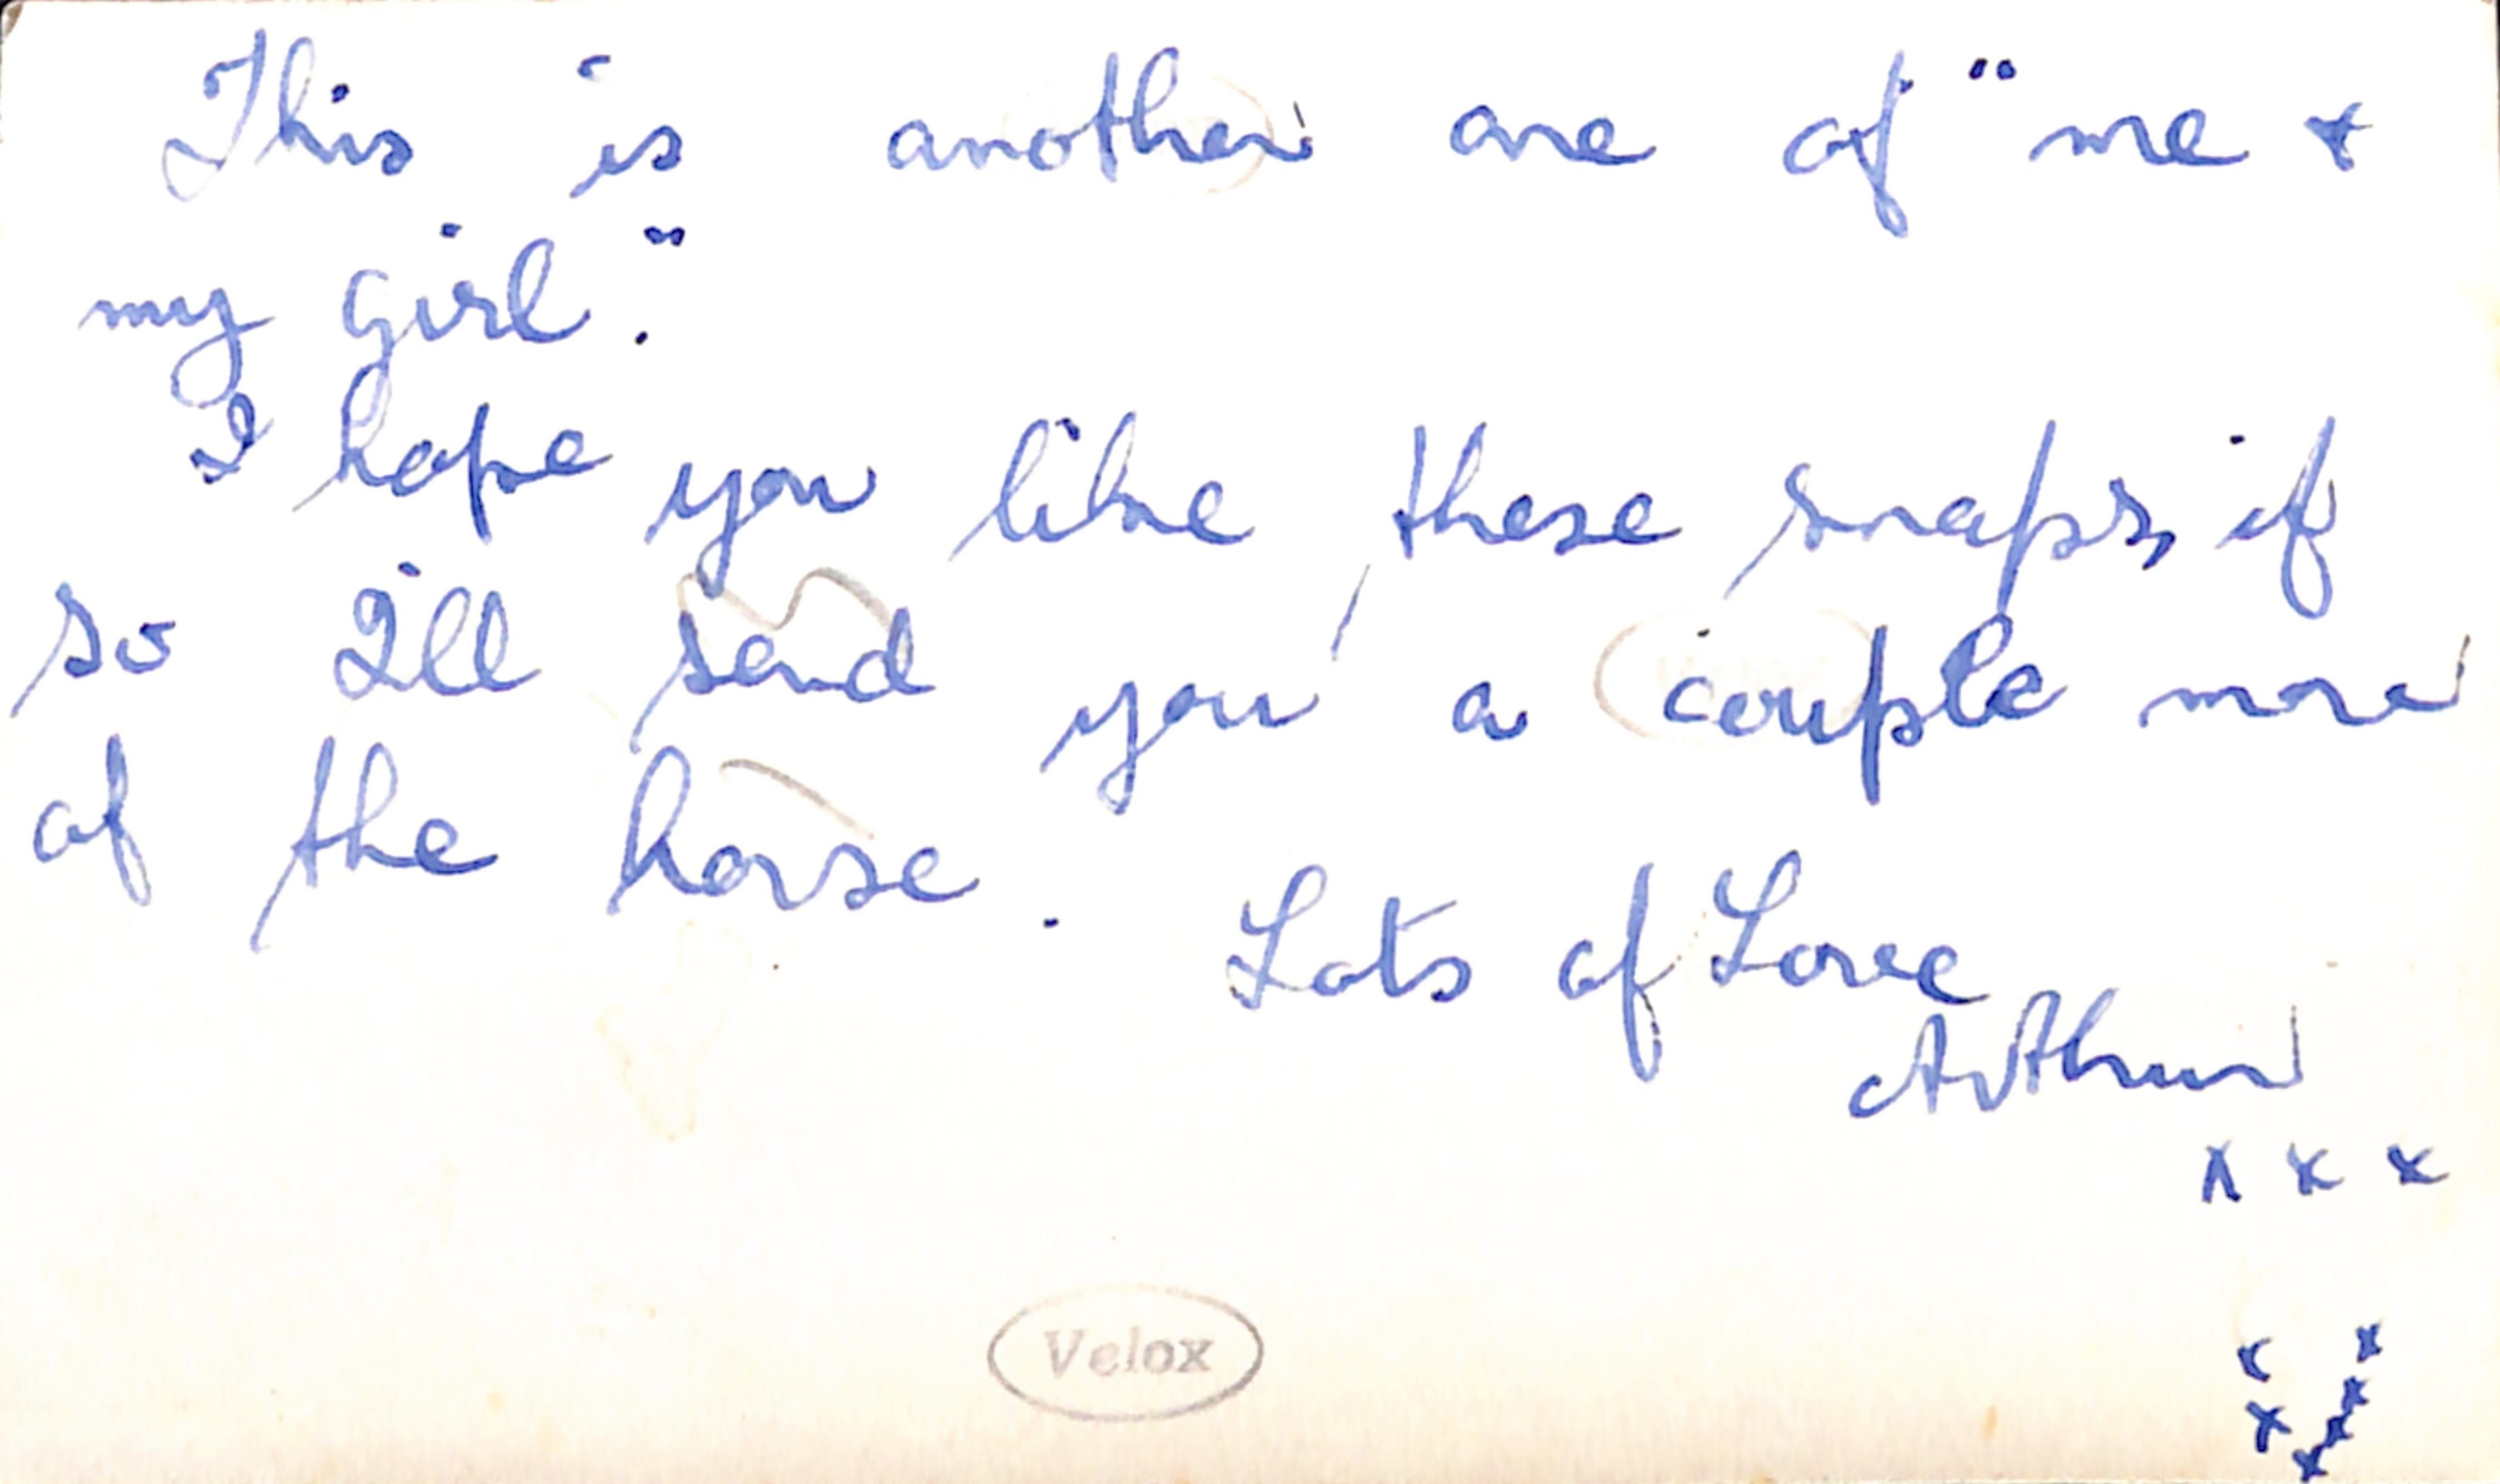 This is another one of "me +
my girl".
I hope you like these snaps, if
so I'll send you a couple more
of the horse.
Lots of Love
Arthur
x x x
x x
x
x x
x
Velox